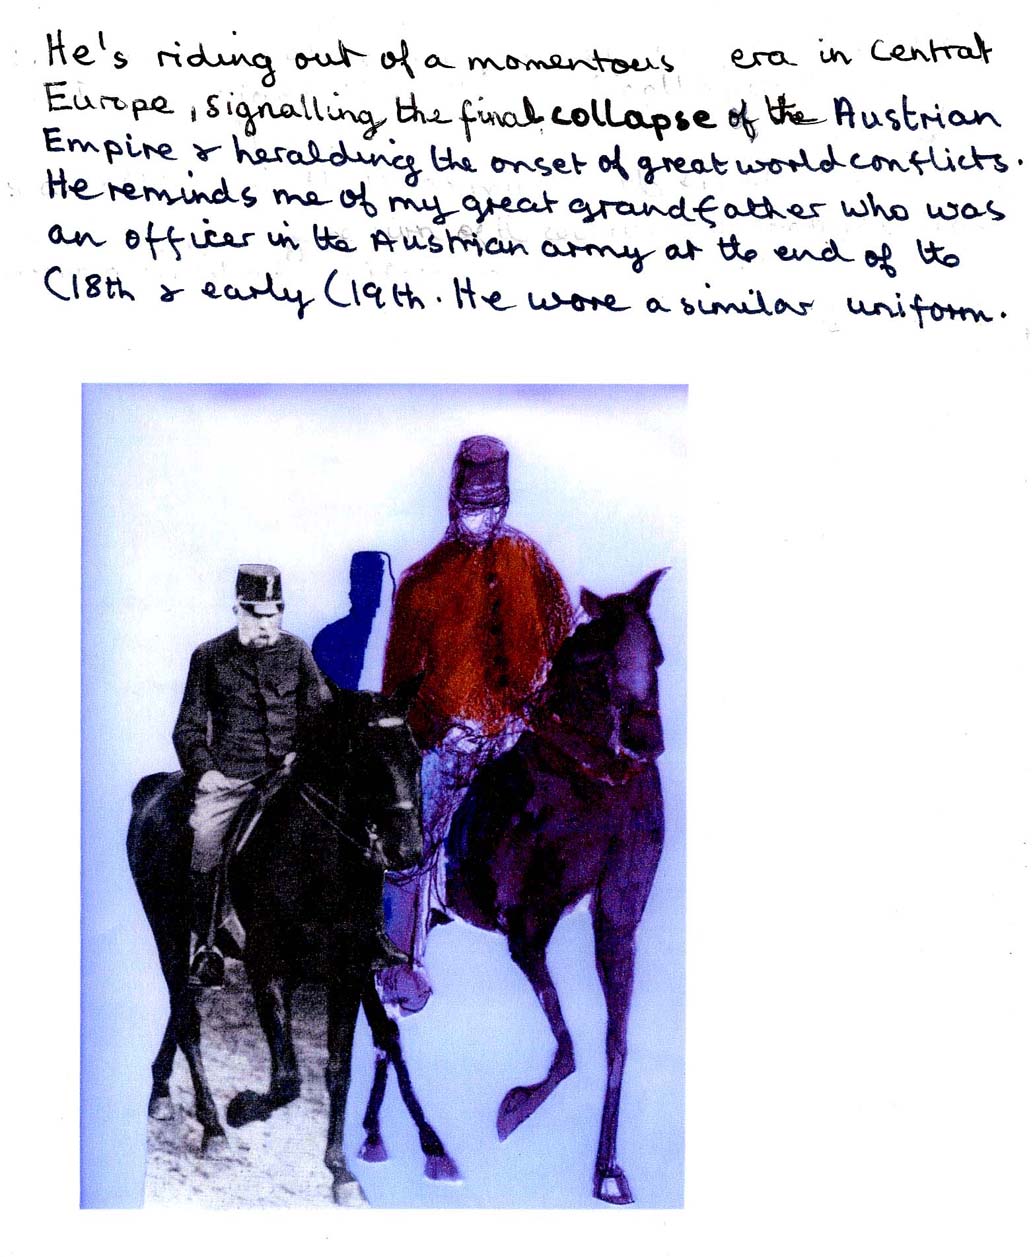 He's riding out of a momentous era in Central
Europe, signalling the final collapse of the Austrian
Empire & heralding the onset of great world conflicts.
He reminds me of my great grandfather who was
an officer in the Austrian army at the end of the
C18th & early C19th. He wore a similar uniform.